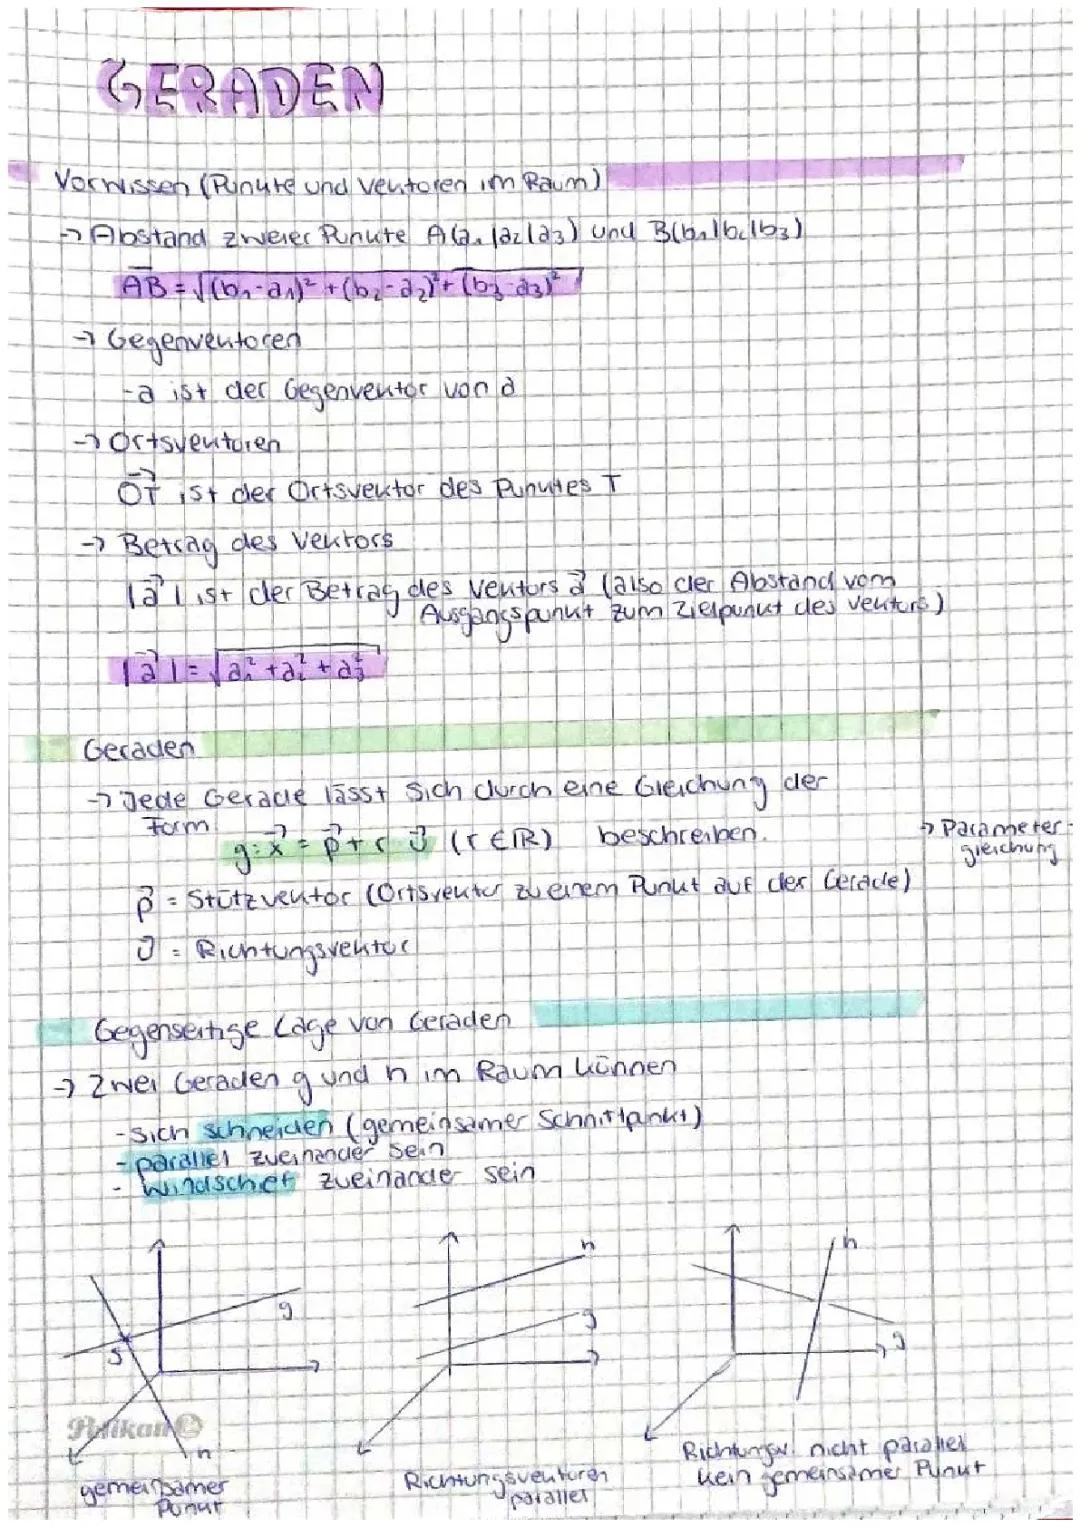 GERADEN
Vorwissen (Punkte und Vektoren im Raum)
→ Abstand zweier Punkte A(a₁|a₂|a₃) und B(b₁|b₂|b₃)
AB = √(b₁-a₁)² + (b₂-a₂)² + (b₃-a₃)²
→ Gegenvektoren
-a ist der Gegenvektor von a
→ Ortsvektoren
OT⃗ ist der Ortsvektor des Punktes T
→ Betrag des Vektors
|a⃗| ist der Betrag des Vektors a⃗ (also der Abstand vom
Ausgangspunkt zum Zielpunkt des Vektors)
|a⃗| = √a₁² + a₂² + a₃²
Geraden
→ Jede Gerade lässt sich durch eine Gleichung der
Form
g: x⃗ = p⃗ + r · u⃗ (r ∈ ℝ) beschreiben.
→ Parameter-
gleichung
p⃗ = Stützvektor (Ortsvektor zu einem Punkt auf der Gerade)
u⃗ = Richtungsvektor
Gegenseitige Lage von Geraden
→ Zwei Geraden g und h im Raum können
- sich schneiden (gemeinsamer Schnittpunkt)
- parallel zueinander sein
- windschief zueinander sein
g
S
h
h
g
h
g
Pelikan
gemeinsamer
Punkt
Richtungsvektoren
parallel
Richtungsv. nicht parallel
kein gemeinsamer Punkt